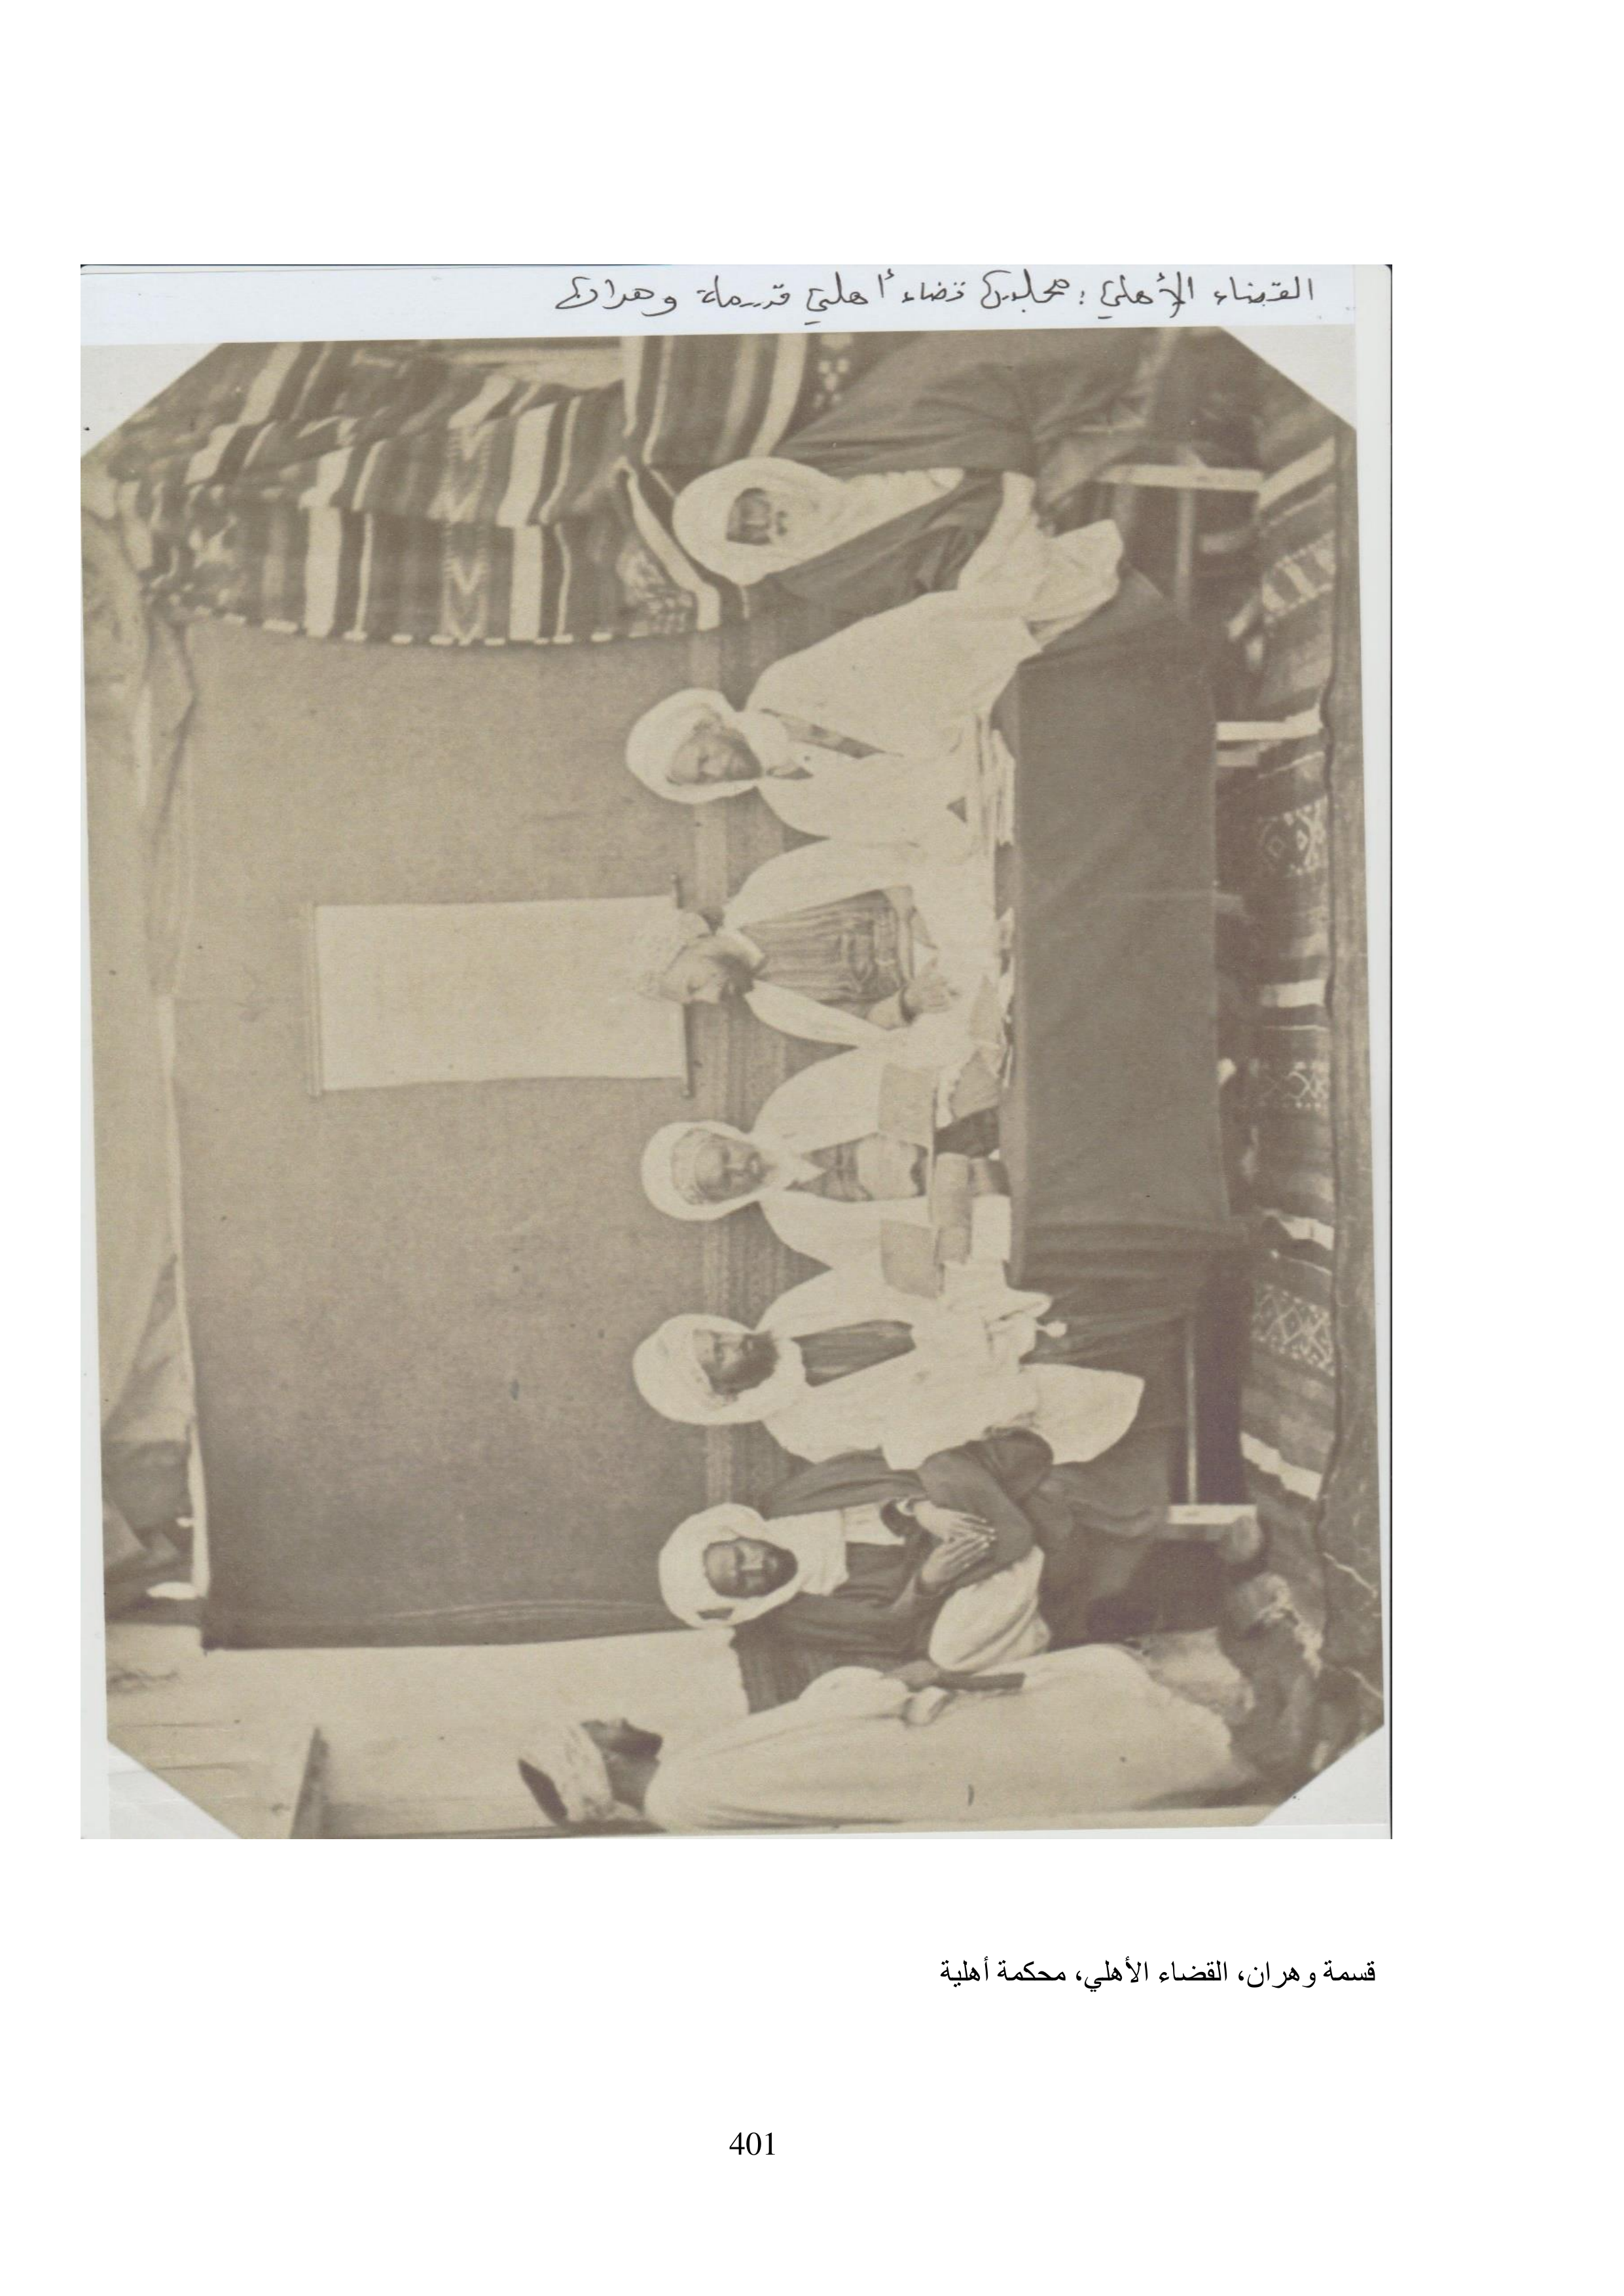 القضاء الأهلي : مجلس قضاء أهلي قسمة وهران
قسمة وهران، القضاء الأهلي، محكمة أهلية
401